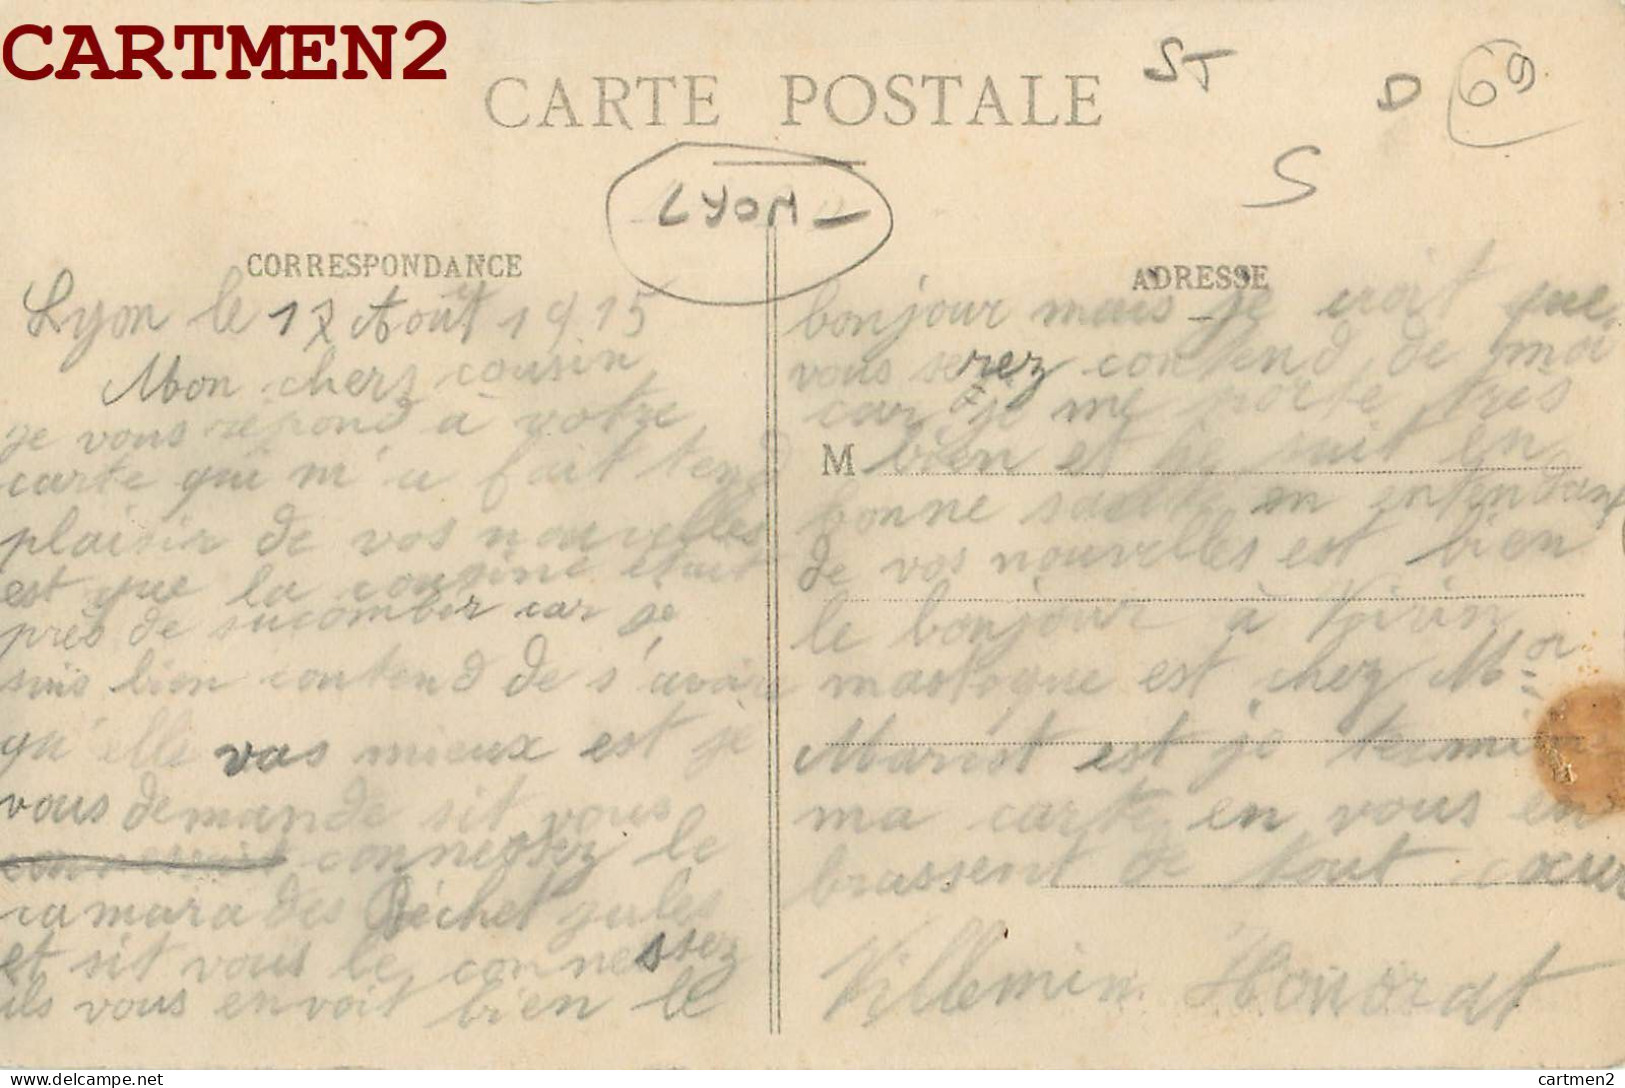 CARTMEN2
CARTE POSTALE
ST
D
69
S
LYON -
CORRESPONDANCE
ADRESSE
Lyon le 17 Août 1915
Mon chers cousin
je vous répond à votre
carte qui m'a fait tend
plaisir de vos nouvelles
est que la cousine était
près de sucomber car je
suis bien contend de s'avoir
qu'elle vas mieux est je
vous demande sit vous
connessez le
camarades Déchet jules
et sit vous le connessez
ils vous envoit bien le
bonjour mais je croit que
vous serez contend de moi
car je me porte très
M
bien et je suit en
bonne santé en entendant
de vos nouvelles est bien
le bonjour à
est chez Mr
Mariot est je termine
ma carte en vous en
brassent de tout coeur
Villemin Honorat
delcampe.net
cartmen2